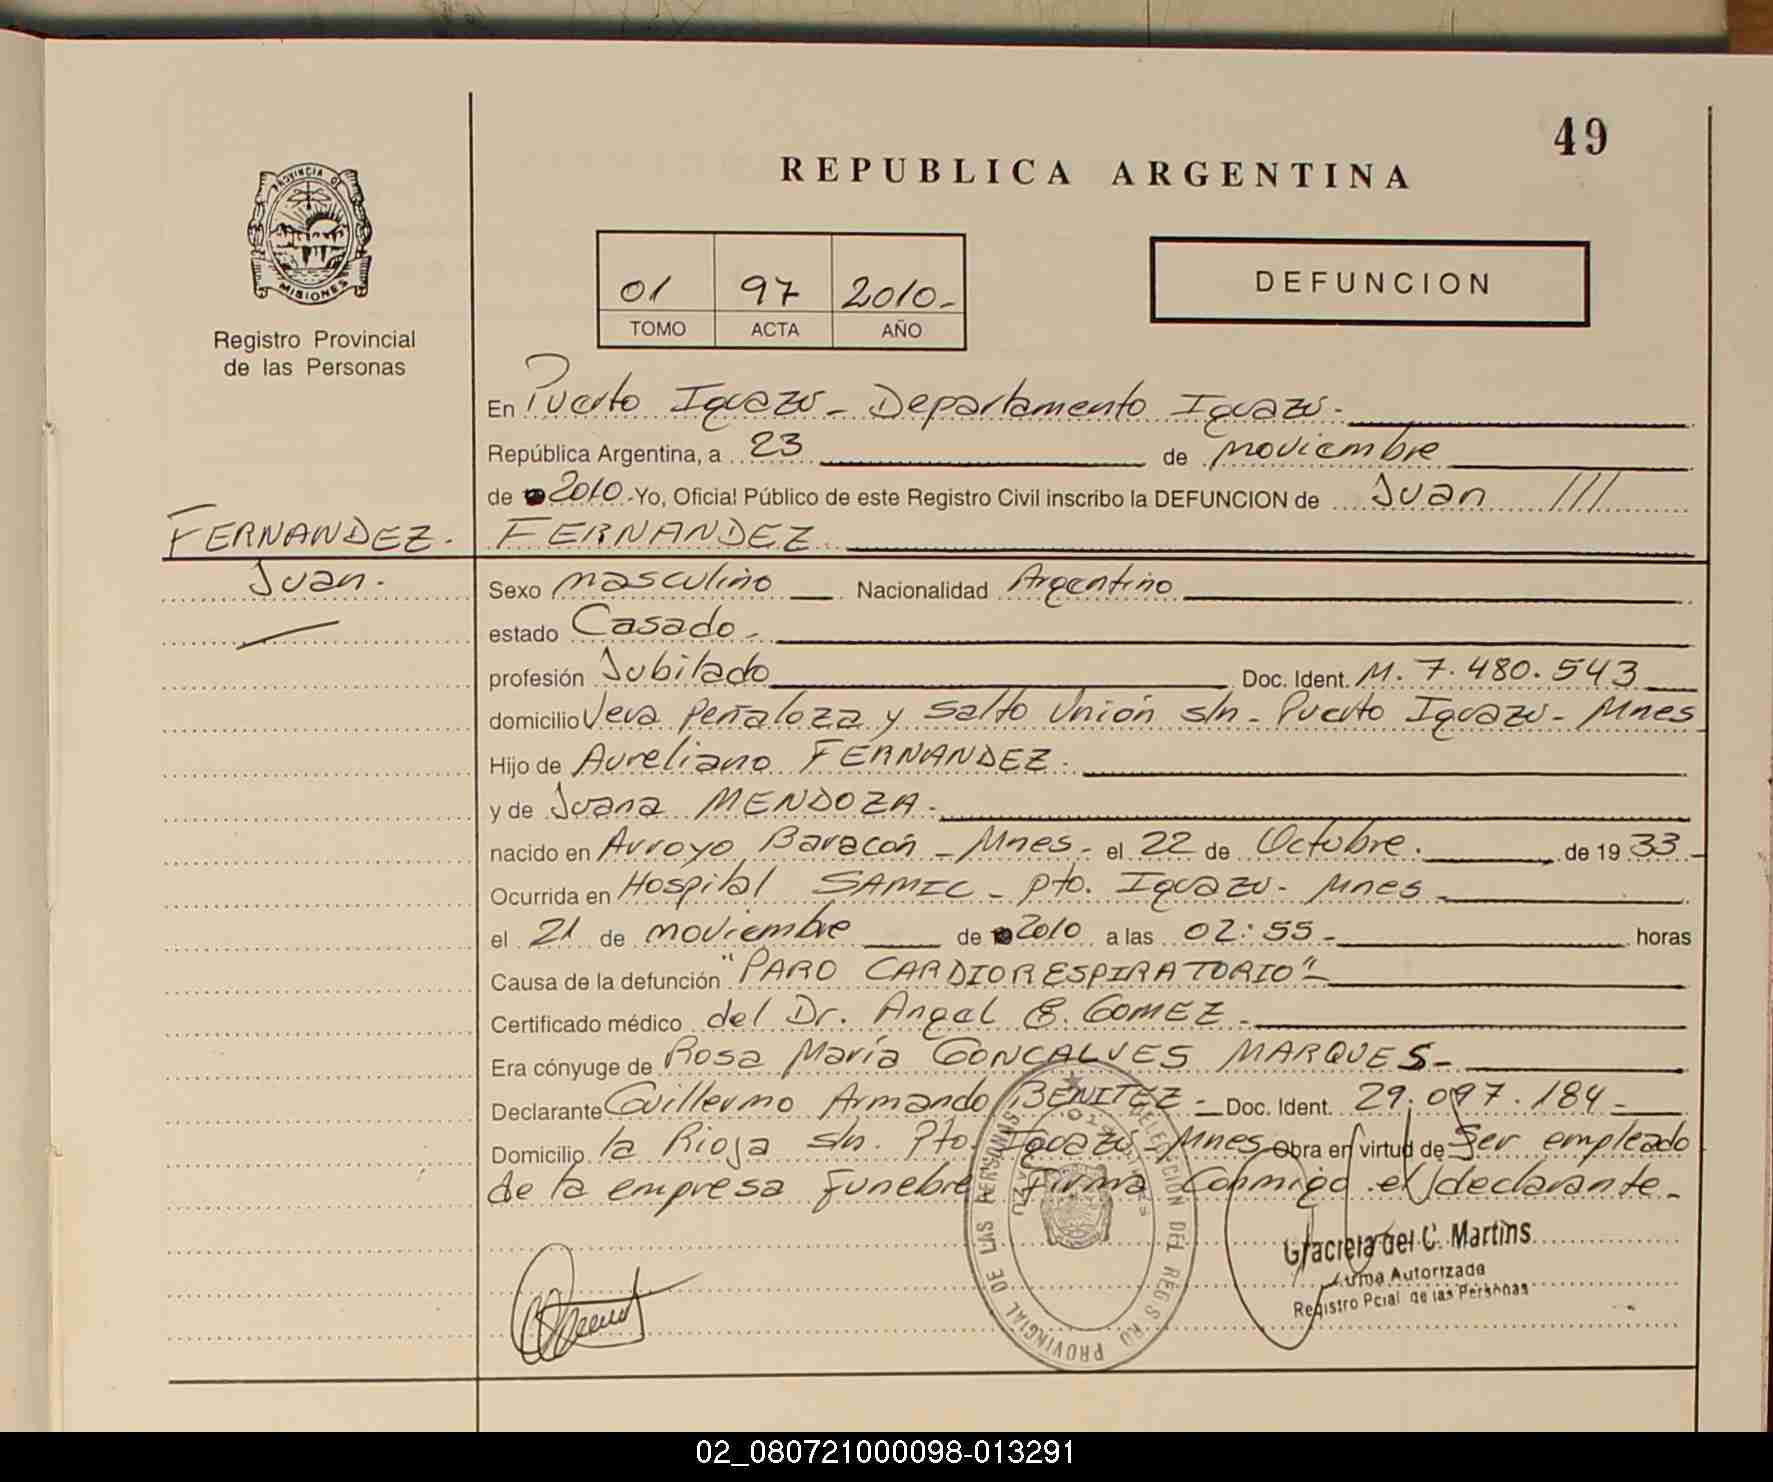 49
REPUBLICA ARGENTINA
PROVINCIA DE
MISIONES
Registro Provincial
de las Personas
01 97 2010-
TOMO ACTA AÑO
DEFUNCION
En Puerto Iguazú - Departamento Iguazú -
República Argentina, a 23 de noviembre
de 2010 - Yo, Oficial Público de este Registro Civil inscribo la DEFUNCION de Juan ///
FERNANDEZ. FERNANDEZ.
Juan.
Sexo masculino Nacionalidad Argentino
estado Casado -
profesión Jubilado Doc. Ident. M. 7.480.543
domicilio Vera Peñaloza y Salto Unión s/n - Puerto Iguazú - Mnes
Hijo de Aureliano FERNANDEZ.
y de Juana MENDOZA.
nacido en Arroyo Baracón - Mnes - el 22 de Octubre. de 19 33 -
Ocurrida en Hospital SAMIC - Pto. Iguazú - Mnes -
el 21 de noviembre de 2010 a las 02:55 - horas
Causa de la defunción "PARO CARDIORESPIRATORIO" -
Certificado médico del Dr. Angel E. GOMEZ -
Era cónyuge de Rosa María GONCALVES MARQUES -
Declarante Guillermo Armando BENITEZ - Doc. Ident. 29.097.184 -
Domicilio la Rioja s/n. Pto. Iguazú Mnes Obra en virtud de Ser empleado
de la empresa funebre Firma Conmigo el declarante -
DELEGACION DEL REGISTRO PROVINCIAL DE LAS PERSONAS
Graciela del C. Martins
Firma Autorizada
Registro Pcial de las Personas
02_080721000098-013291